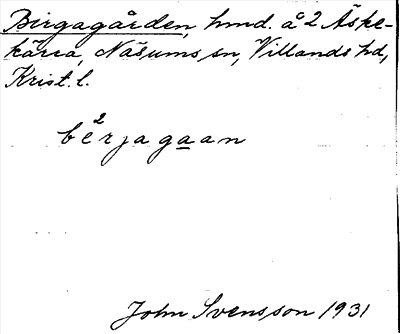 Birgagården, hmd. å 2 Äske-
kärra, Näsums sn, Villands hd,
Krist. l.
2
bèrjagaan
John Svensson 1931